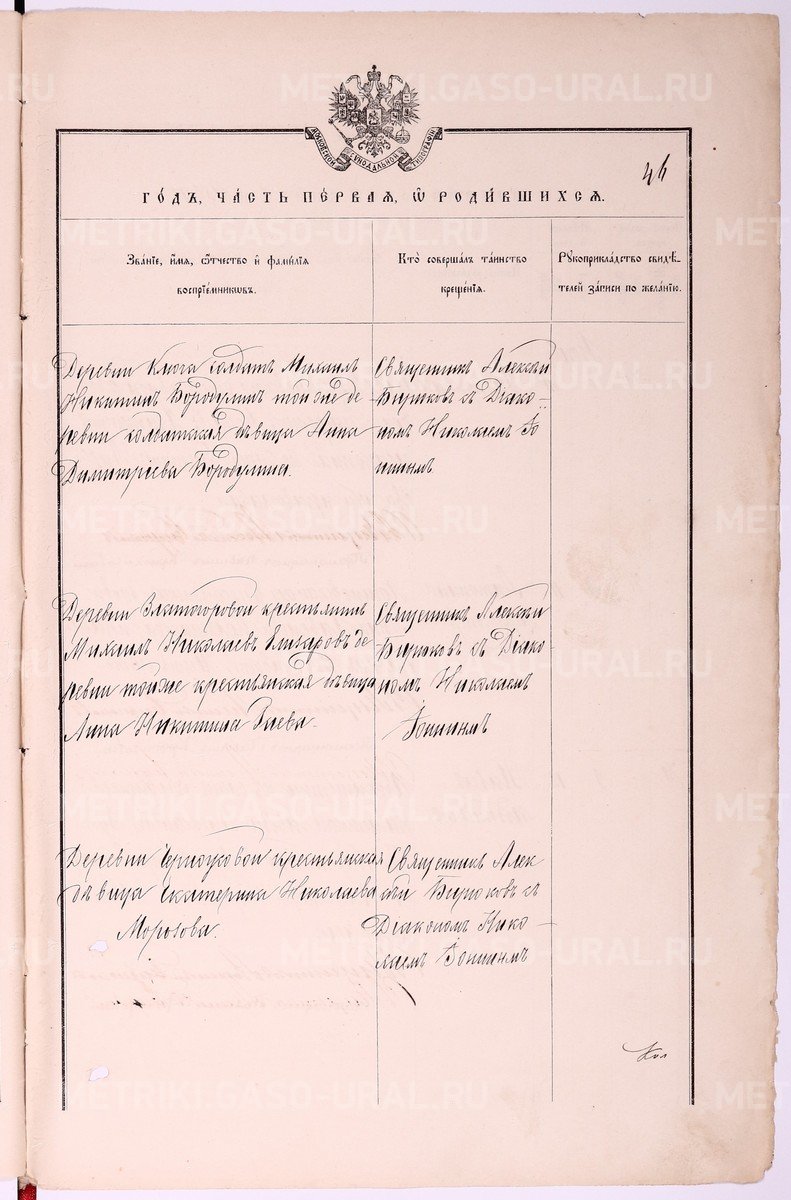 МОСКОВСКОЙ СѴНОДАЛЬНОЙ ТИПОГРАФІИ
46
ГО́ДЪ, ЧА́СТЬ ПЕ́РВАЯ, Ѡ҆ РОДИ́ВШИХСЯ.
Зва́нїе, и҆́мя, ѻ҆́тчество и҆ фами́лїя
воспрїе́мниковъ.
Кто̀ соверша́лъ та́инство
креще́нїя.
Рꙋкоприкла́дство свидѣ́-
телей за́писи по жела́нїю.
Деревни Книга солдатъ Михаилъ
Никитинъ Бородулинъ той же де
ревни солдатская дѣвица Анна
Димитріева Бородулина.
Священникъ Алексѣй
Бирюковъ съ Діако-
номъ Николаемъ Іо
нинымъ
Деревни Златогоровой крестьянинъ
Михаилъ Николаевъ Елизаровъ де
ревни тойже крестьянская дѣвица
Анна Никитина Гаева.
Священникъ Алексѣй
Бирюковъ съ Діако-
номъ Николаемъ
Іонинымъ
Деревни Черноусовой крестьянская
дѣвица Екатерина Николаева
Морозова.
Священникъ Алек
сѣй Бирюковъ съ
Діакономъ Нико-
лаемъ Іонинымъ
Кол
METRIKI.GASO-URAL.RU